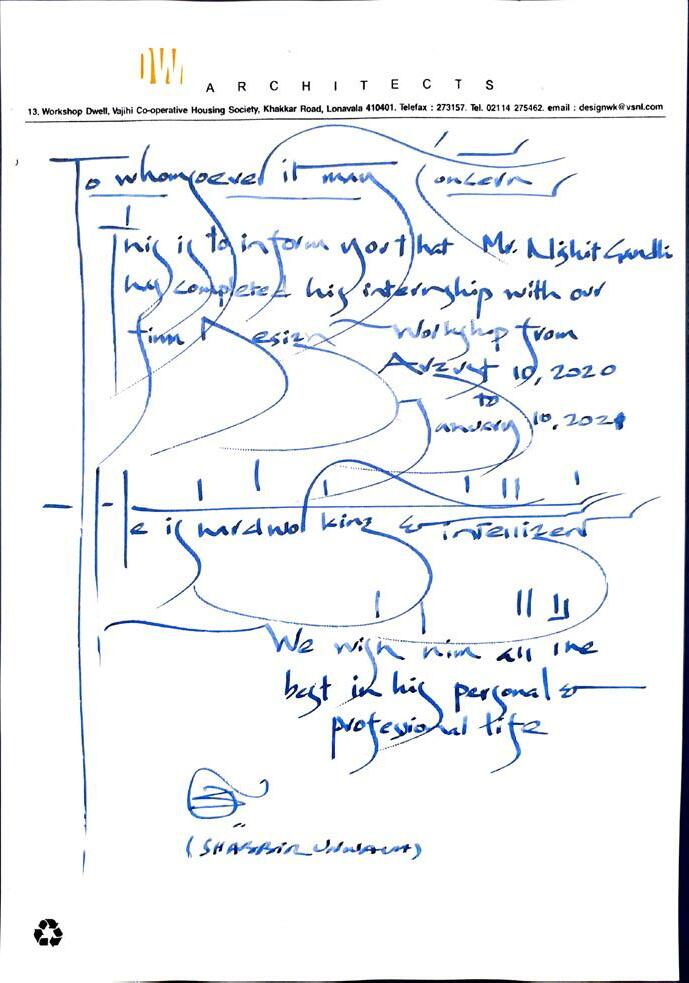 DW
ARCHITECTS
13, Workshop Dwell, Vajihi Co-operative Housing Society, Khakkar Road, Lonavala 410401. Telefax : 273157. Tel. 02114 275462. email : designwk@vsnl.com
To whomsoever it may Concern
This is to inform you that Mr. Nishit Gandhi
has completed his internship with our
firm Design Workshop from
August 10, 2020
to
January 10, 2021
He is hardworking & intelligent
We wish him all the
best in his personal &
professional life
(SHABBIR UNWALA)